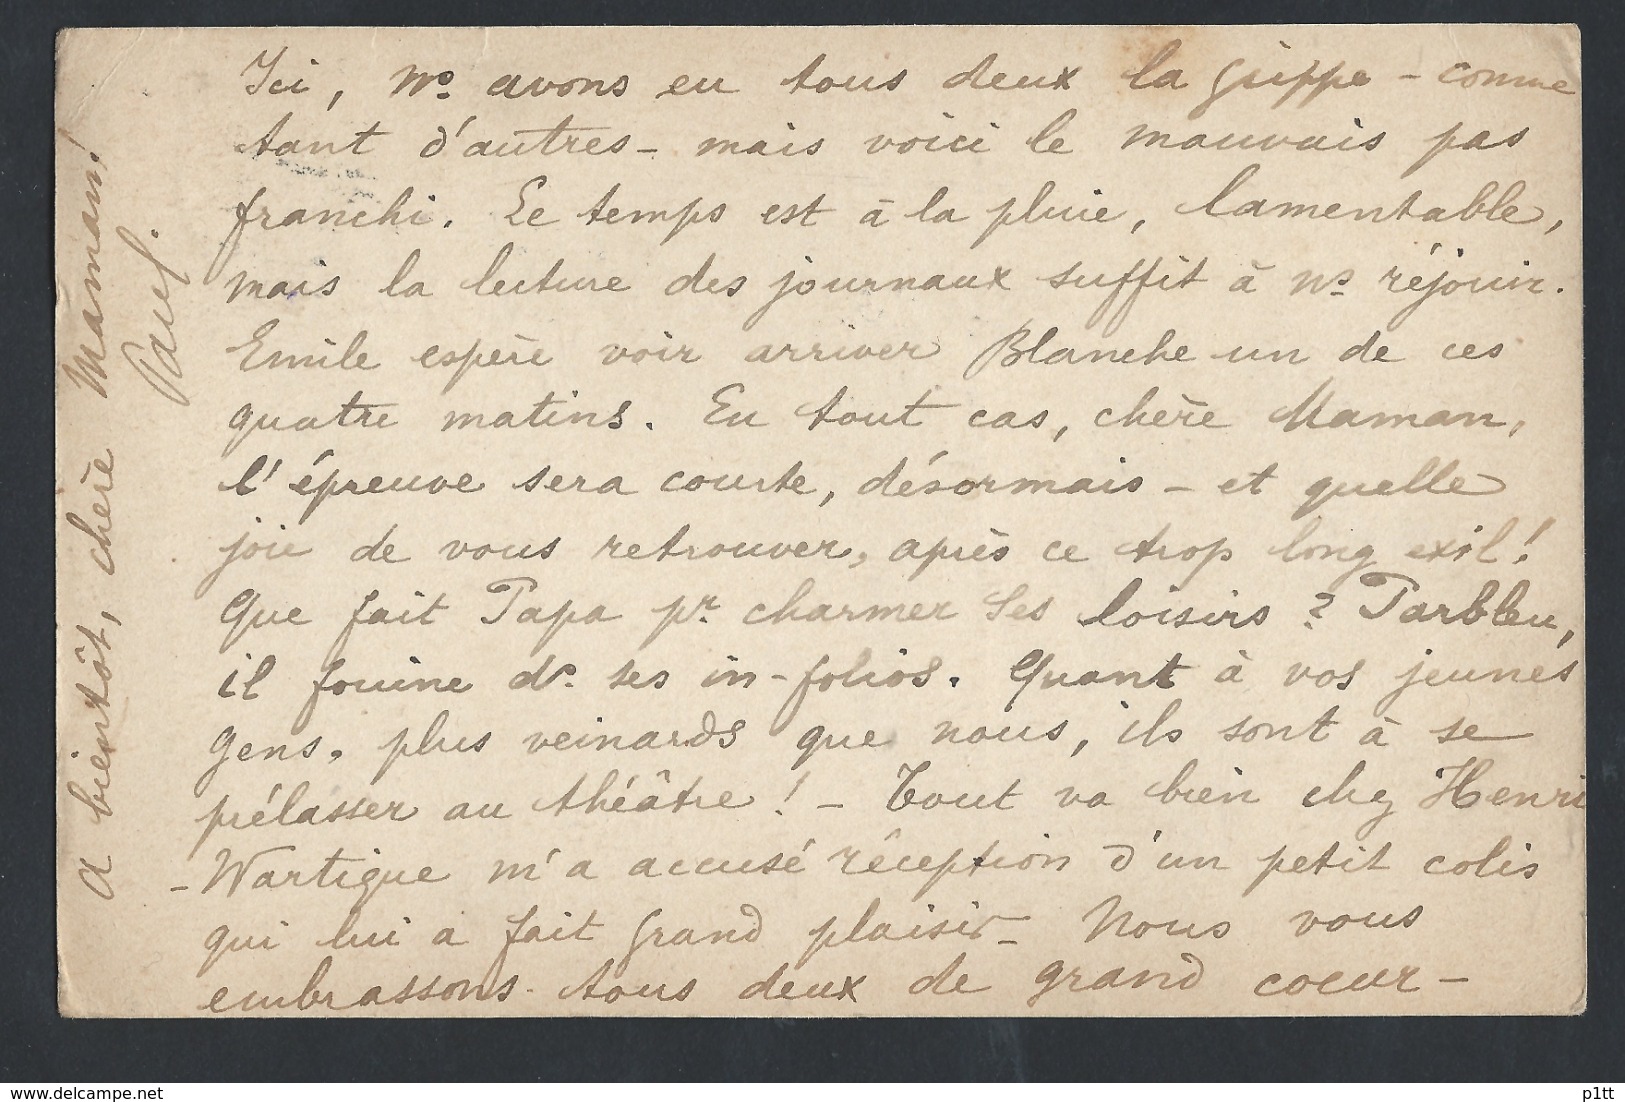 Ici, ns. avons eu tous deux la grippe - comme
tant d'autres - mais voici le mauvais pas
franchi. Le temps est à la pluie, lamentable,
mais la lecture des journaux suffit à ns réjouir.
Emile espère voir arriver Blanche un de ces
quatre matins. En tout cas, chère Maman,
l'épreuve sera courte, désormais - et quelle
joie de vous retrouver, après ce trop long exil!
Que fait Papa pr charmer ses loisirs ? Parbleu,
il fouine ds. ses in-folios. Quant à vos jeunes
gens, plus veinards que nous, ils sont à se
prélasser au théâtre ! - Tout va bien chez Henri
- Wartique m'a accusé réception d'un petit colis
qui lui a fait grand plaisir - Nous vous
embrassons tous deux de grand coeur -
A bientôt, chère Maman!
Paul.
delcampe.net
p1tt